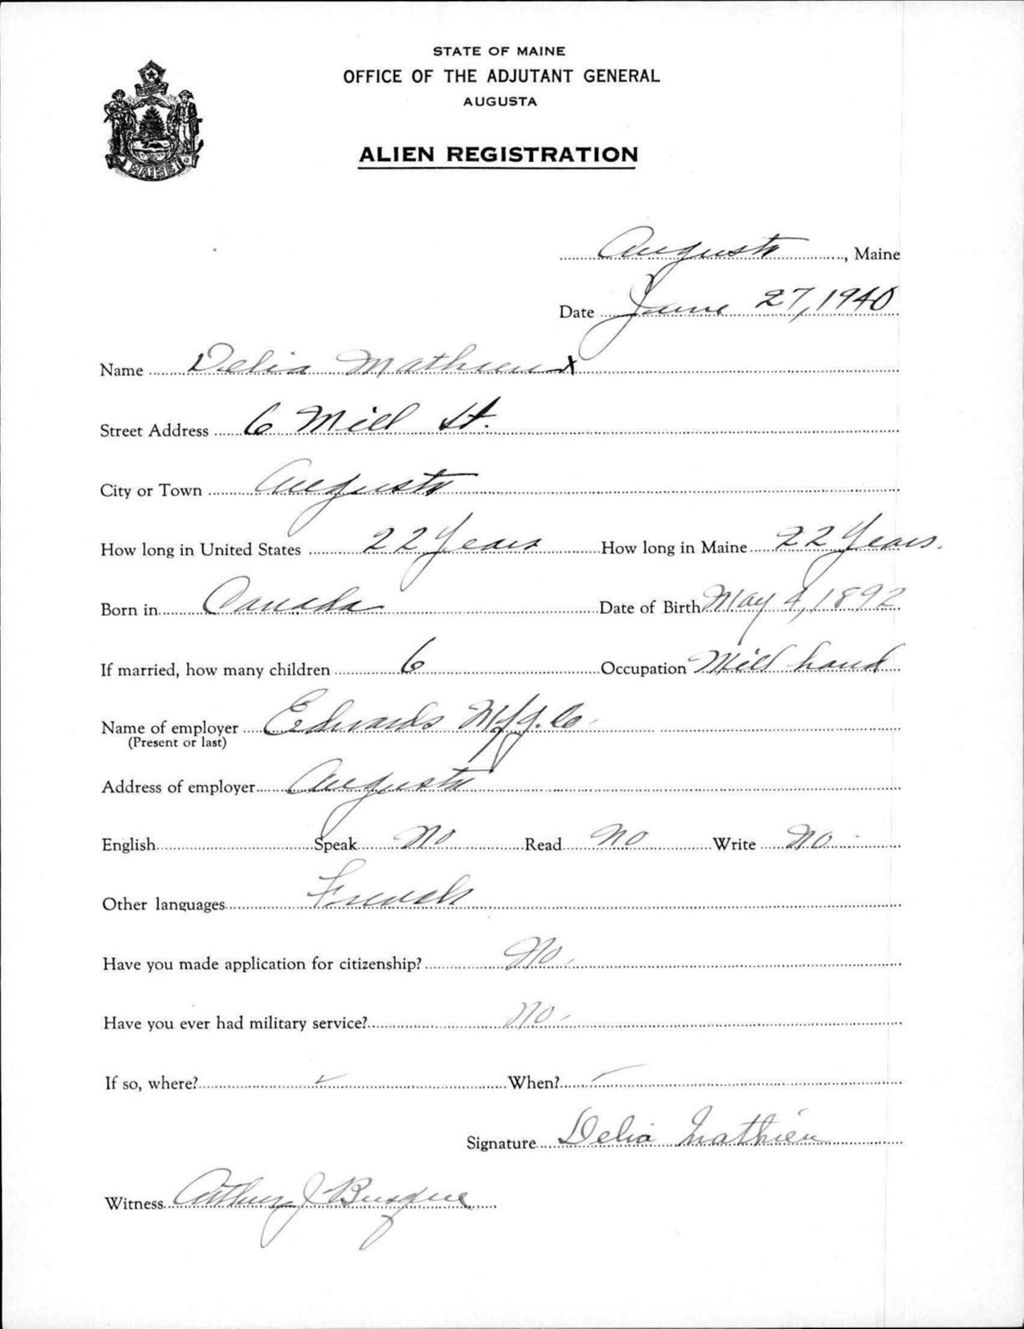 STATE OF MAINE
OFFICE OF THE ADJUTANT GENERAL
AUGUSTA
ALIEN REGISTRATION
MAINE
Augusta, Maine
Date June 27, 1940
Name Delia Mathieu x
Street Address 6 Mill St.
City or Town Augusta
How long in United States 22 Years How long in Maine 22 Years.
Born in Canada Date of Birth May 4, 1892
If married, how many children 6 Occupation Mill hand
Name of employer Edwards Mfg. Co.
(Present or last)
Address of employer Augusta
English Speak No Read No Write No
Other languages French
Have you made application for citizenship? No.
Have you ever had military service? No.
If so, where? When?
Signature Delia Mathieu
Witness Arthur J Busque